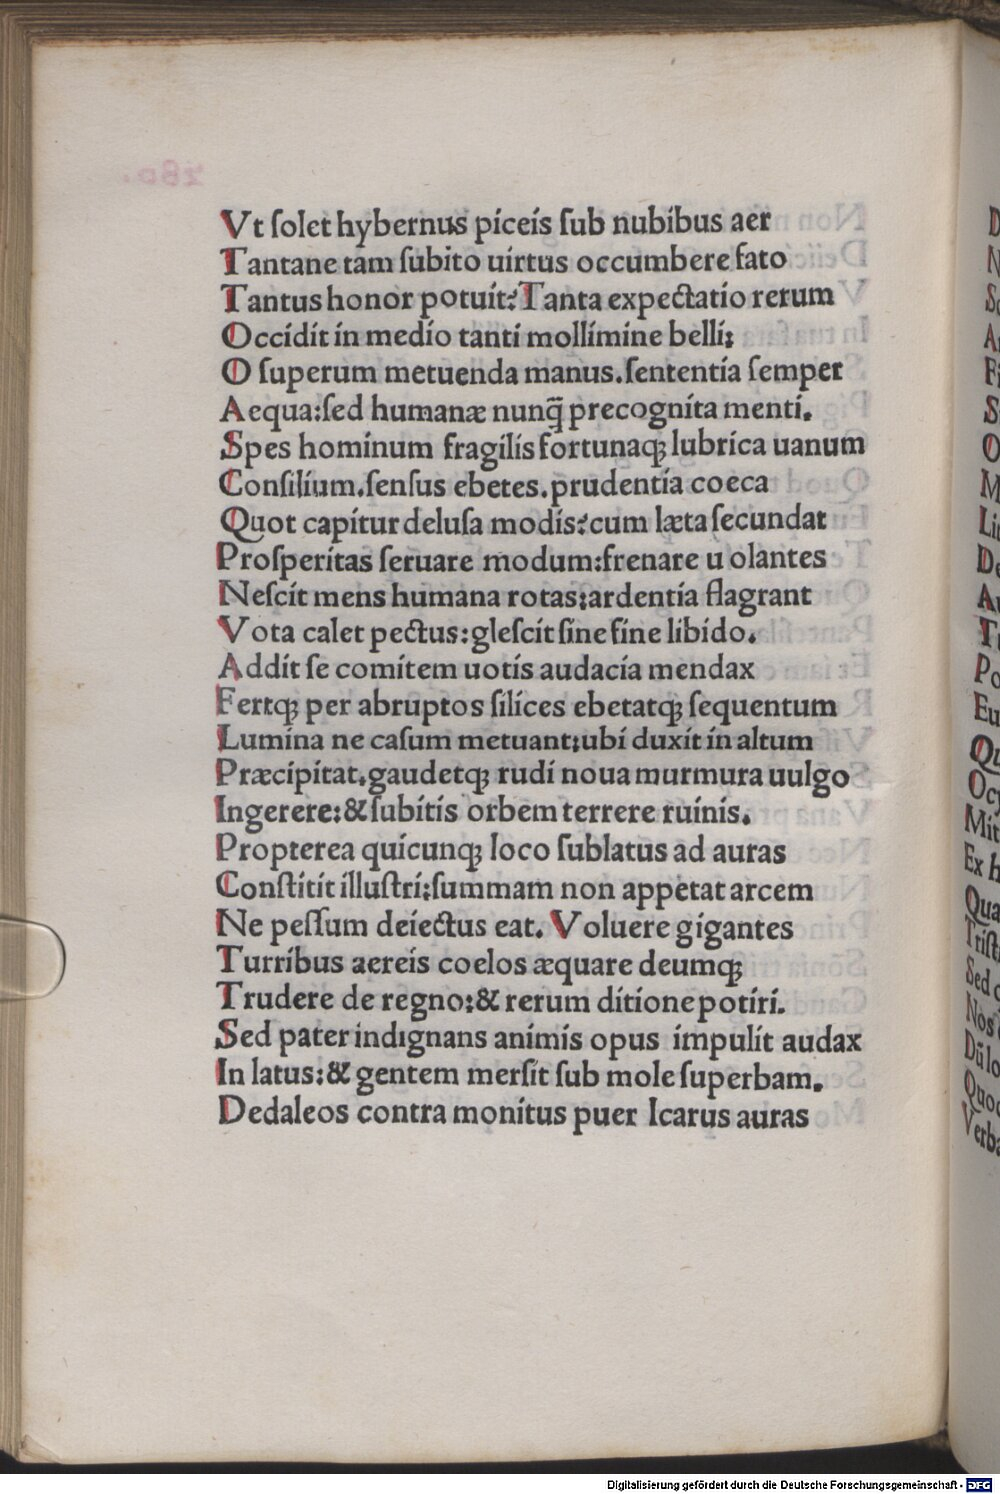 Vt ſolet hybernus piceis ſub nubibus aer
Tantane tam ſubito uirtus occumbere fato
Tantus honor potuit? Tanta expectatio rerum
Occidit in medio tanti mollimine belli;
O ſuperum metuenda manus. ſententia ſemper
Aequa: ſed humanæ nunq̄ precognita menti.
Spes hominum fragilis fortunaqꝫ lubrica uanum
Conſilium. ſenſus ebetes. prudentia coeca
Quot capitur deluſa modis? cum læta ſecundat
Proſperitas ſeruare modum: frenare u olantes
Neſcit mens humana rotas; ardentia flagrant
Vota calet pectus: gleſcit ſine fine libido.
Addit ſe comitem uotis audacia mendax
Fertqꝫ per abruptos ſilices ebetatqꝫ ſequentum
Lumina ne caſum metuant; ubi duxit in altum
Præcipitat. gaudetqꝫ rudi noua murmura uulgo
Ingerere: & ſubitis orbem terrere ruinis.
Propterea quicunqꝫ loco ſublatus ad auras
Conſtitit illuſtri; ſummam non appetat arcem
Ne peſſum deiectus eat. Voluere gigantes
Turribus aereis coelos æquare deumqꝫ
Trudere de regno; & rerum ditione potiri.
Sed pater indignans animis opus impulit audax
In latus: & gentem merſit ſub mole ſuperbam.
Dedaleos contra monitus puer Icarus auras
Digitalisierung gefördert durch die Deutsche Forschungsgemeinschaft - DFG